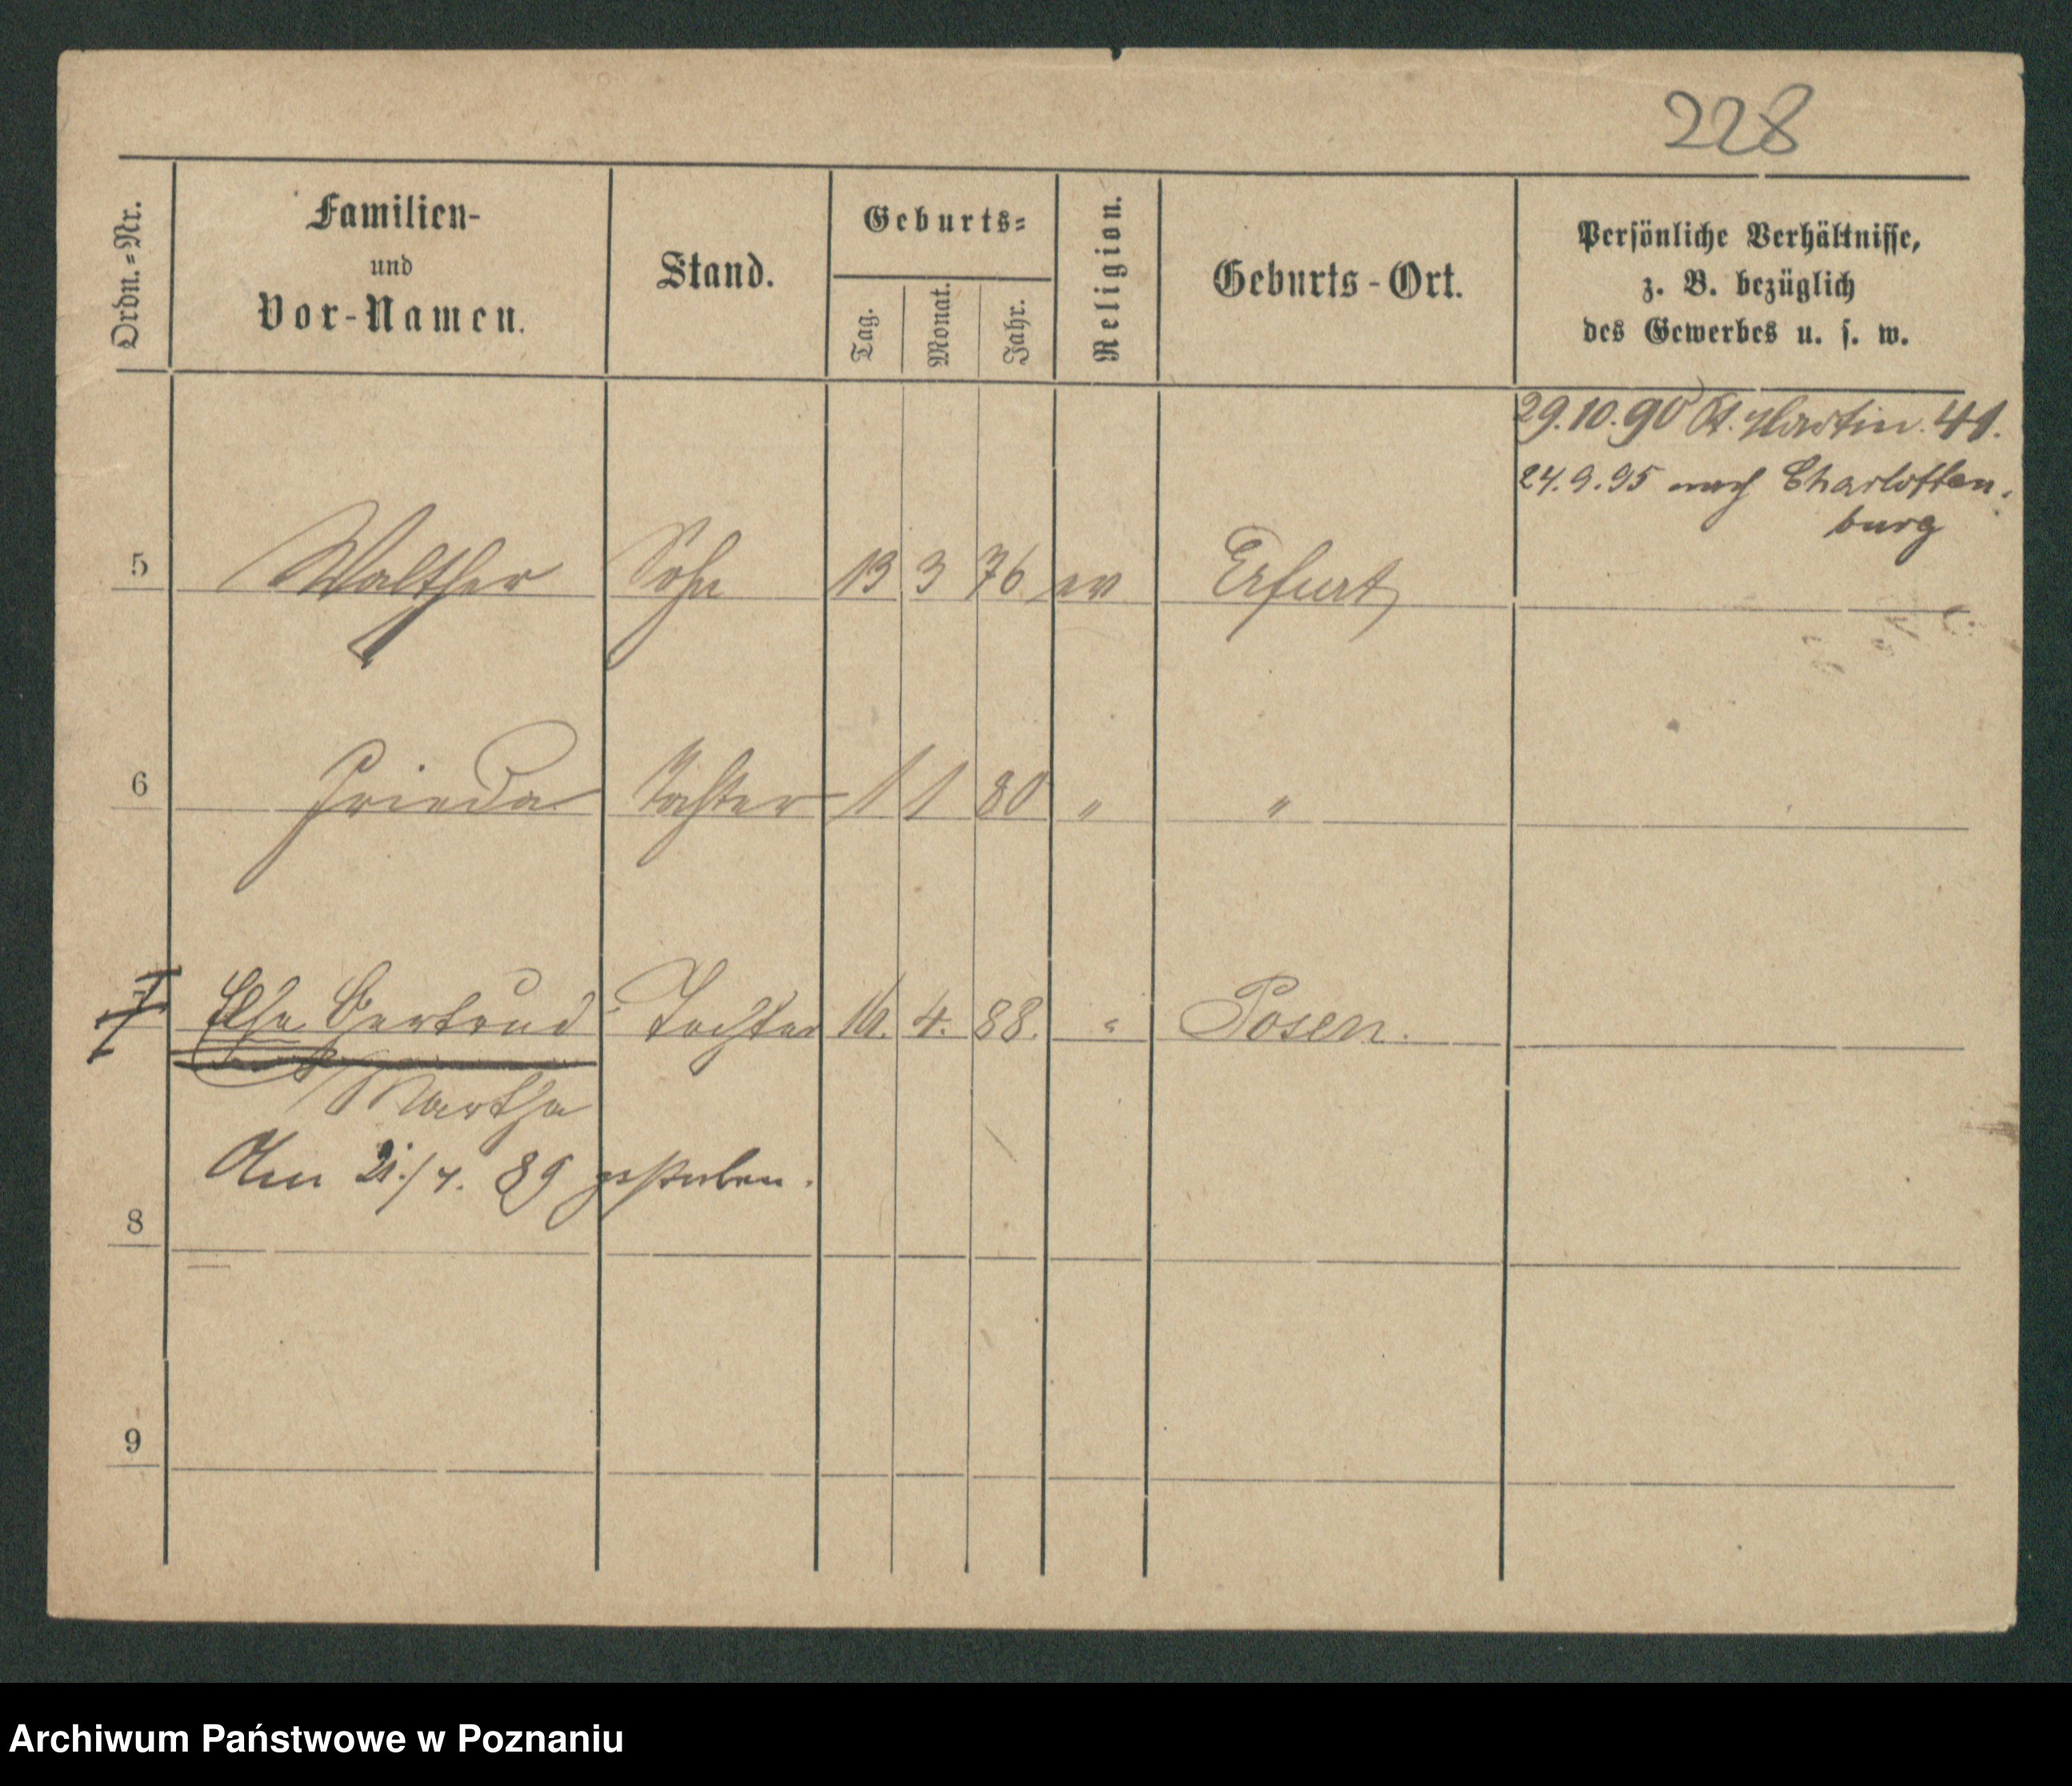 228
Ordn.=Nr.
Familien-
und
Vor-Namen.
Stand.
Geburts=
Tag.
Monat.
Jahr.
Religion.
Geburts-Ort.
Persönliche Verhältnisse,
z. B. bezüglich
des Gewerbes u. s. w.
29.10.90 St. Martin 41.
24.9.95 nach Charlotten-
burg
5 Walther Sohn 13 3 76 ev Erfurt
6 Frieda Tochter 1 1 80 " "
7 Else Gertrud Tochter 16. 4. 88. " Posen.
Martha
Am 21./4. 89 gestorben.
8
9
Archiwum Państwowe w Poznaniu